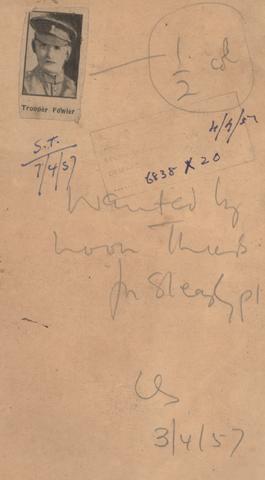 Trooper Fowler
1/2 col
4/4/57
S.T.
7/4/57
6838 X 20
Wanted by
noon Thurs
for
3/4/57